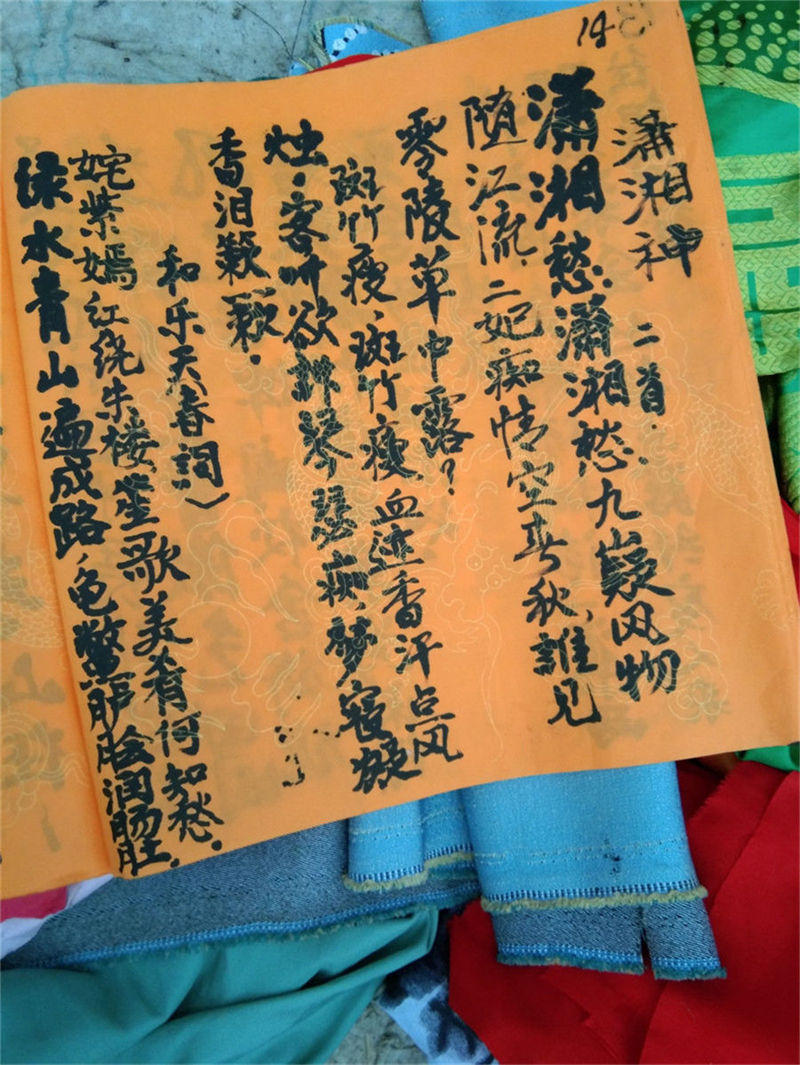 14
潇湘神 二首.
潇湘愁潇湘愁九嶷风物
随江流.二妃痴情空春秋,誰见
零陵草中露?
斑竹瘦.斑竹瘦血迹香汗点风
烛,客叶欲訴琴瑟痴,梦寝凝
香泪簌簌.
和乐天春词)
姹紫嫣红绕朱楼,笙歌美肴何知愁.
绿水青山遍成路,色鳖鲈脍润肠肚.